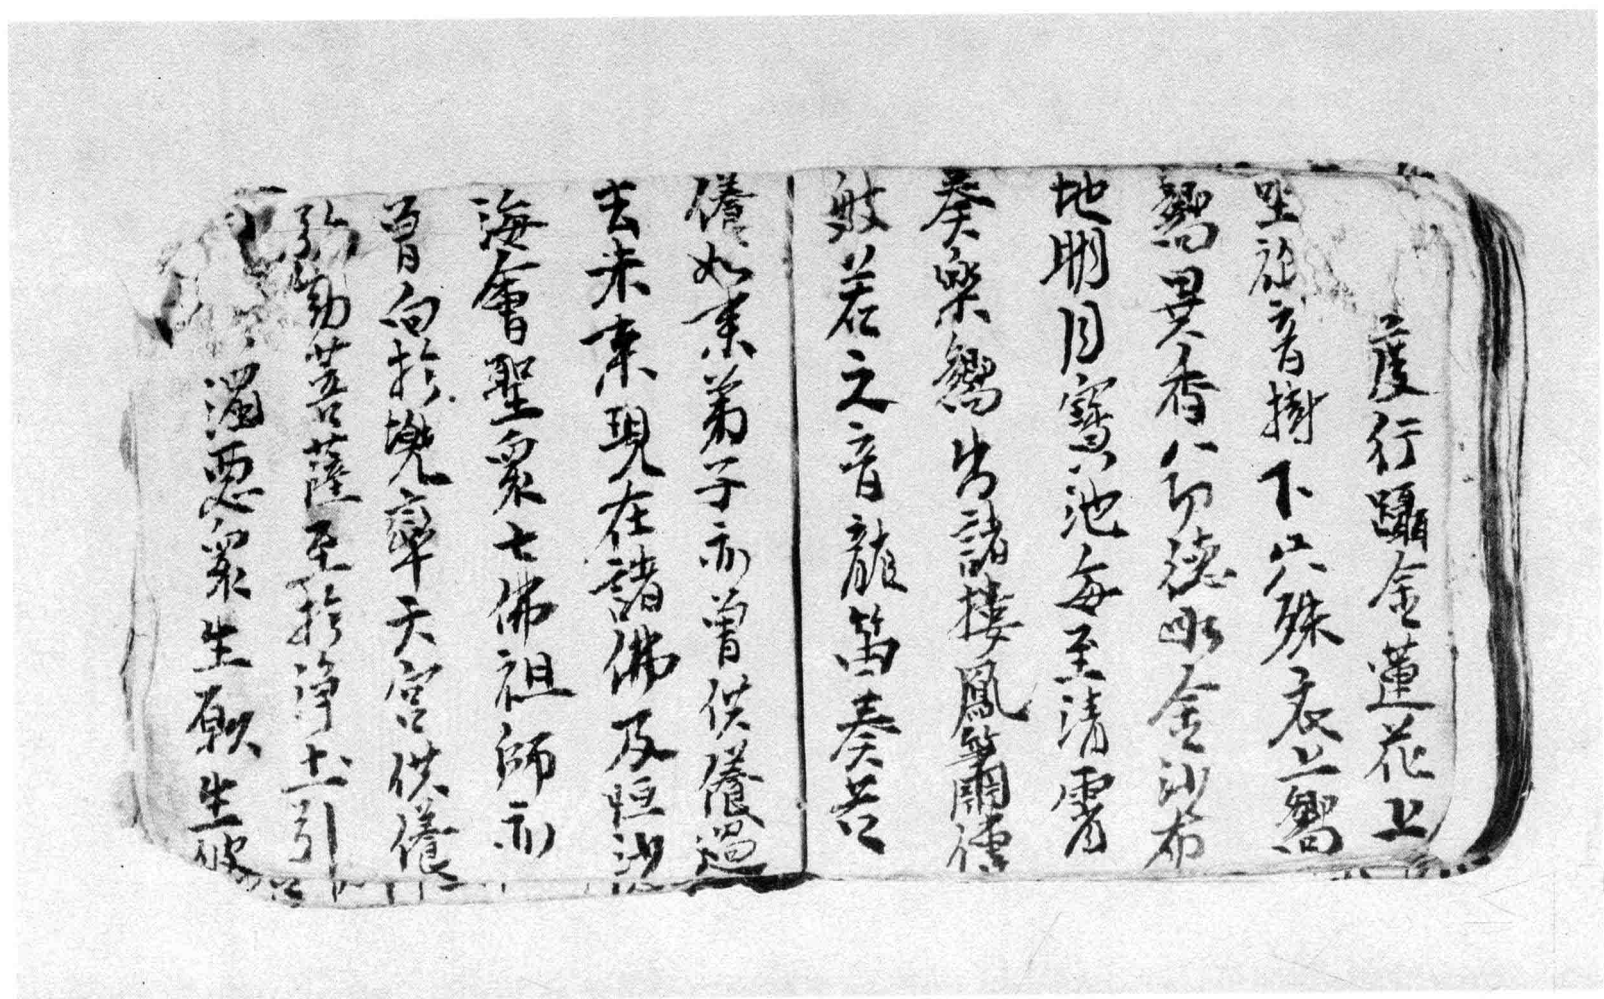 度行躡金蓮花上
坐於音樹下六殊衣上嚮
嚮異香八功德水金沙布
地明月寶池每至清霄
奏樂嚮出諸樓鳳簫傳
般若之音龍笛奏苦
養如來弟子亦曾供養過
去未來現在諸佛及恒沙
海會聖眾七佛祖師亦
曾向於兜率天宮供養
弥勒菩薩至於淨土引
濁惡眾生願生彼